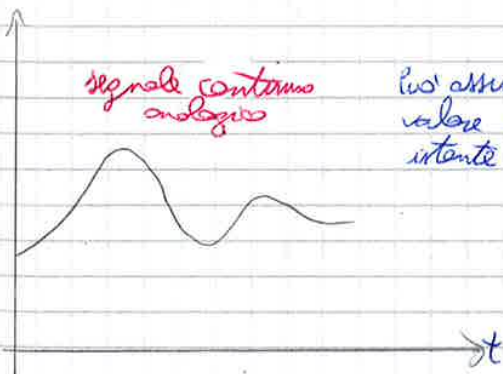 segnale continuo
analogico
Può assu
valore
istante
t